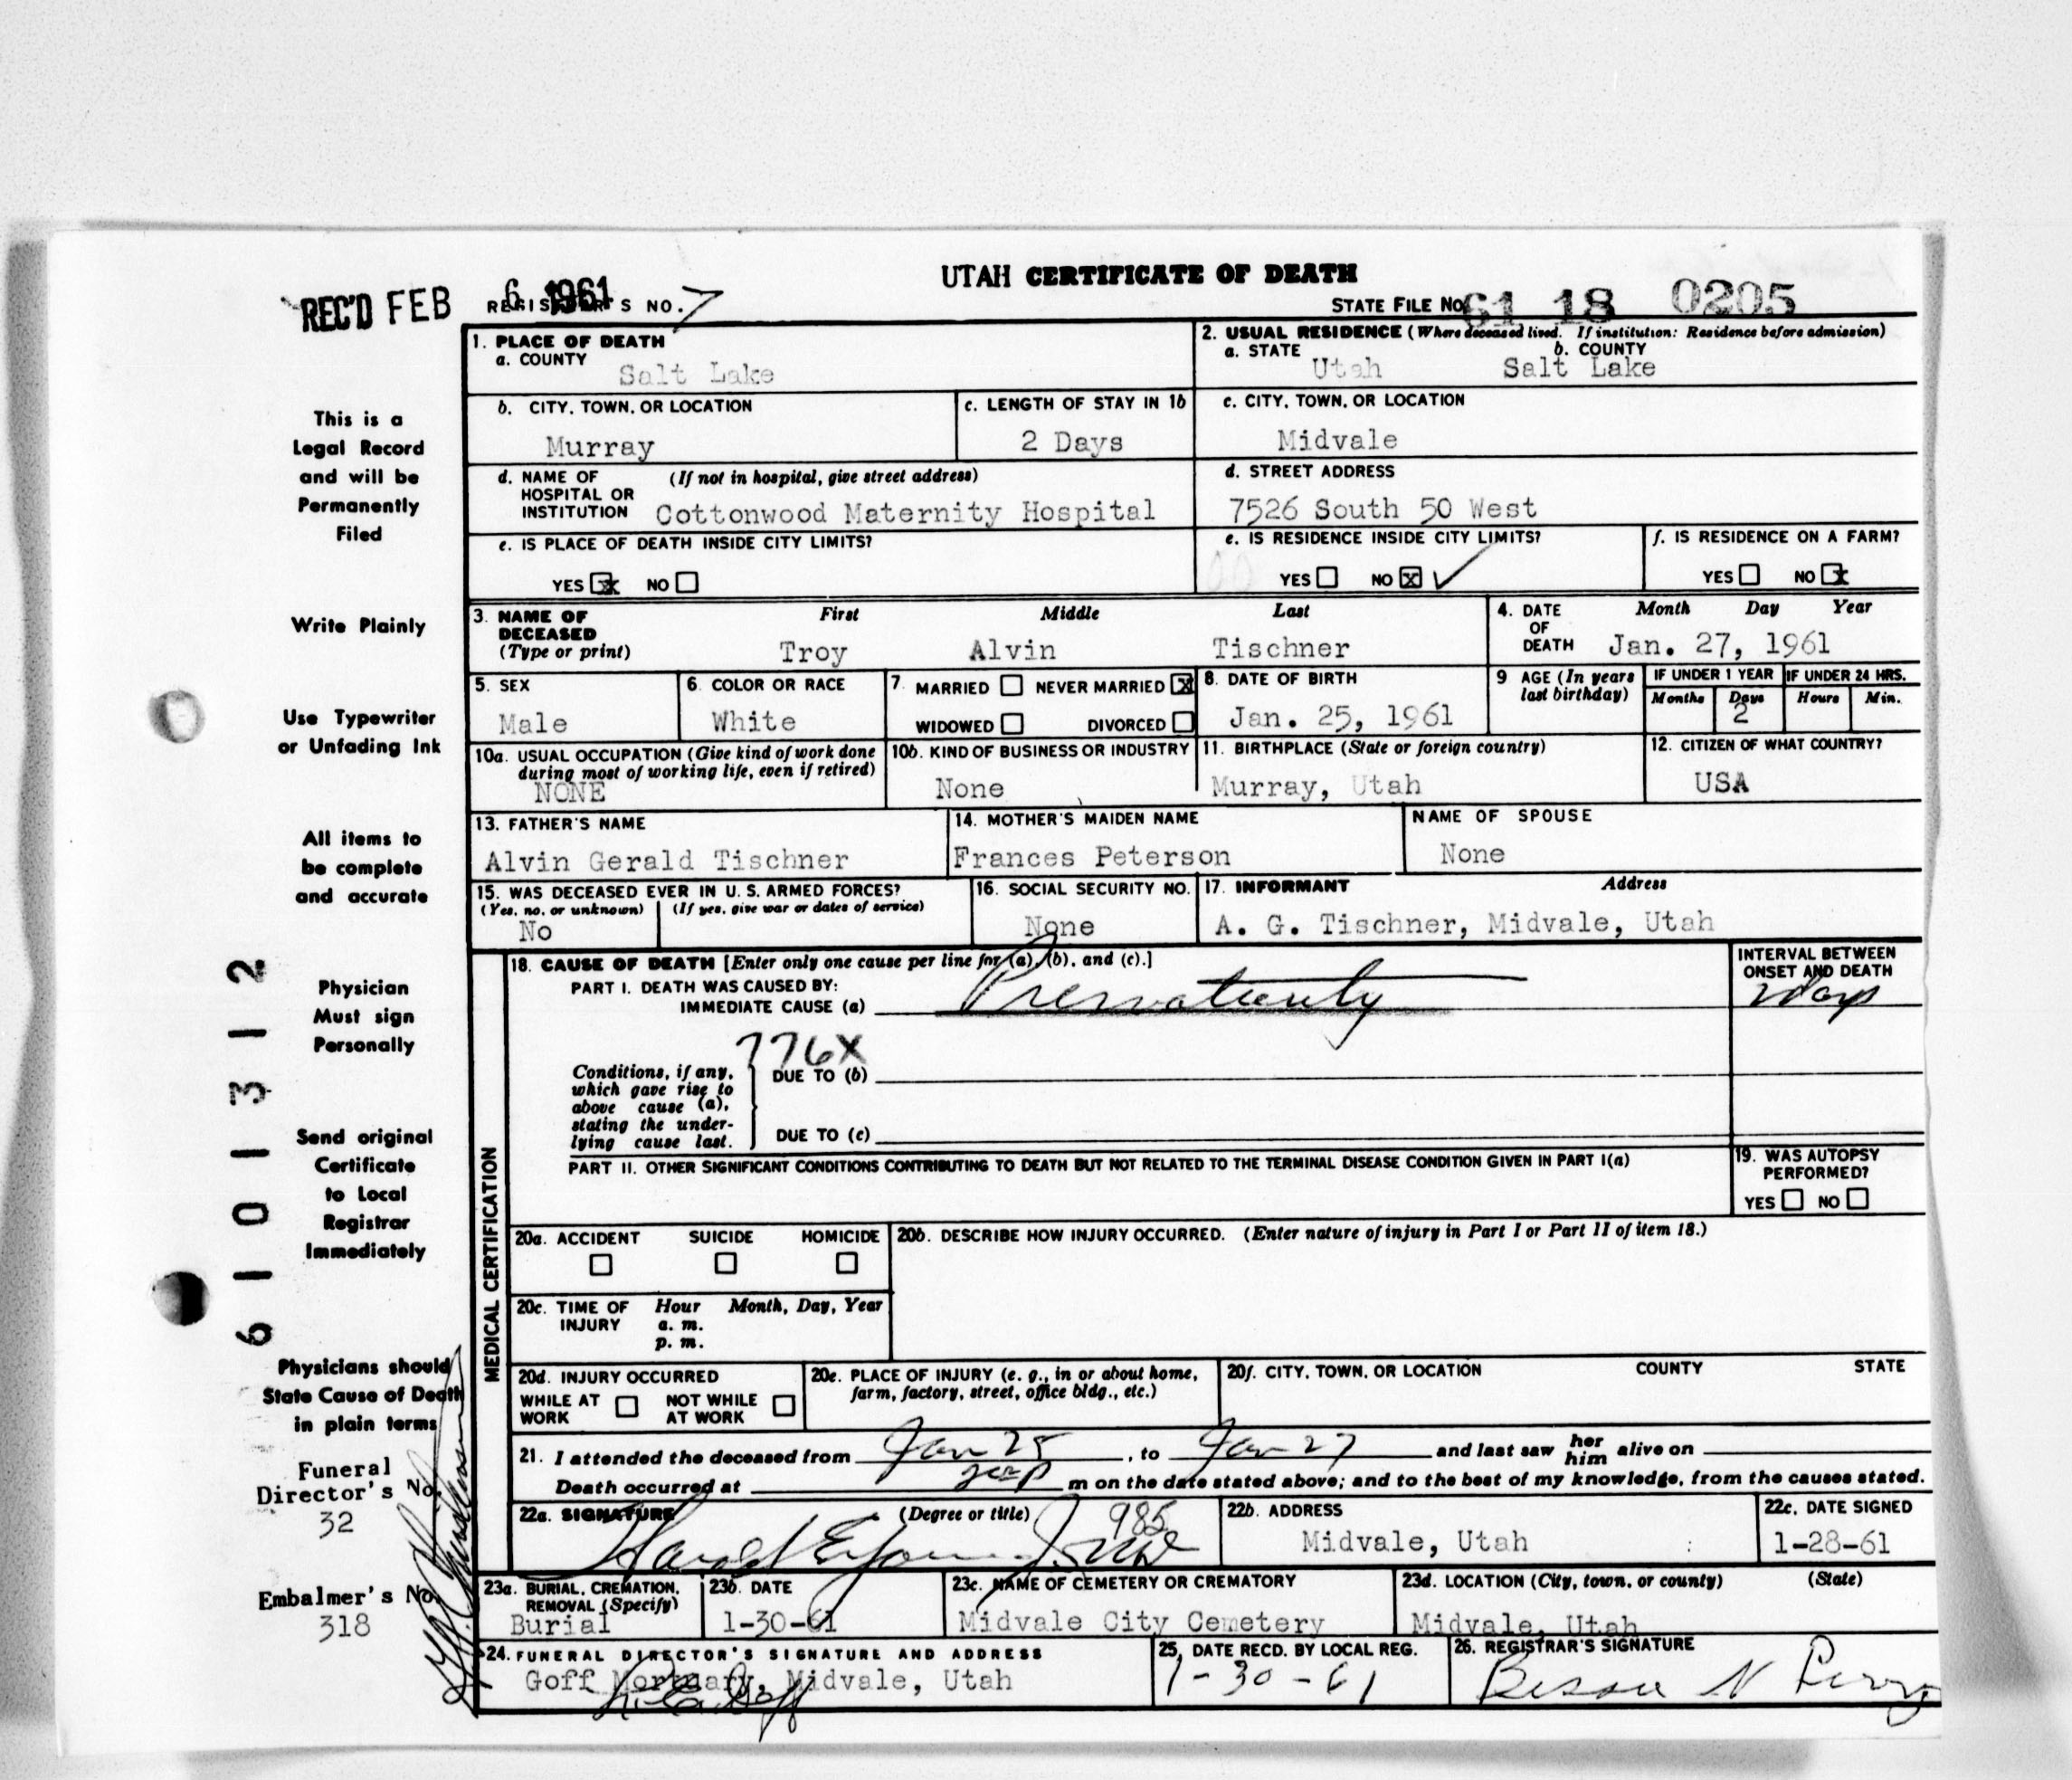 UTAH CERTIFICATE OF DEATH
REC'D FEB 6 1961
REGISTRAR'S NO. 7
STATE FILE NO. 61 18 0205
1. PLACE OF DEATH
a. COUNTY
Salt Lake
2. USUAL RESIDENCE (Where deceased lived. If institution: Residence before admission)
a. STATE b. COUNTY
Utah Salt Lake
b. CITY, TOWN, OR LOCATION
Murray
c. LENGTH OF STAY IN 1b
2 Days
c. CITY, TOWN, OR LOCATION
Midvale
d. NAME OF (If not in hospital, give street address)
HOSPITAL OR
INSTITUTION Cottonwood Maternity Hospital
d. STREET ADDRESS
7526 South 50 West
e. IS PLACE OF DEATH INSIDE CITY LIMITS?
YES x NO
e. IS RESIDENCE INSIDE CITY LIMITS?
YES NO x
f. IS RESIDENCE ON A FARM?
YES NO x
3. NAME OF DECEASED (Type or print)
First Middle Last
Troy Alvin Tischner
4. DATE OF DEATH
Month Day Year
Jan. 27, 1961
5. SEX
Male
6. COLOR OR RACE
White
7. MARRIED NEVER MARRIED x
WIDOWED DIVORCED
8. DATE OF BIRTH
Jan. 25, 1961
9 AGE (In years last birthday)
IF UNDER 1 YEAR IF UNDER 24 HRS.
Months Days Hours Min.
2
10a. USUAL OCCUPATION (Give kind of work done
during most of working life, even if retired)
NONE
10b. KIND OF BUSINESS OR INDUSTRY
None
11. BIRTHPLACE (State or foreign country)
Murray, Utah
12. CITIZEN OF WHAT COUNTRY?
USA
13. FATHER'S NAME
Alvin Gerald Tischner
14. MOTHER'S MAIDEN NAME
Frances Peterson
NAME OF SPOUSE
None
15. WAS DECEASED EVER IN U. S. ARMED FORCES?
(Yes, no, or unknown) (If yes, give war or dates of service)
No
16. SOCIAL SECURITY NO.
None
17. INFORMANT Address
A. G. Tischner, Midvale, Utah
MEDICAL CERTIFICATION
18. CAUSE OF DEATH [Enter only one cause per line for (a), (b), and (c).]
PART I. DEATH WAS CAUSED BY:
IMMEDIATE CAUSE (a) Prematurity
INTERVAL BETWEEN
ONSET AND DEATH
2 days
776X
Conditions, if any,
which gave rise to
above cause (a),
stating the under-
lying cause last.
DUE TO (b)
DUE TO (c)
PART II. OTHER SIGNIFICANT CONDITIONS CONTRIBUTING TO DEATH BUT NOT RELATED TO THE TERMINAL DISEASE CONDITION GIVEN IN PART I(a)
19. WAS AUTOPSY
PERFORMED?
YES NO
20a. ACCIDENT SUICIDE HOMICIDE
20b. DESCRIBE HOW INJURY OCCURRED. (Enter nature of injury in Part I or Part II of item 18.)
20c. TIME OF INJURY Hour Month, Day, Year
a. m.
p. m.
20d. INJURY OCCURRED
WHILE AT WORK NOT WHILE AT WORK
20e. PLACE OF INJURY (e. g., in or about home,
farm, factory, street, office bldg., etc.)
20f. CITY, TOWN, OR LOCATION COUNTY STATE
21. I attended the deceased from Jan 25, to Jan 27 and last saw her him alive on
Death occurred at m on the date stated above; and to the best of my knowledge, from the causes stated.
22a. SIGNATURE (Degree or title) 985
Harold E Young Jr. MD
22b. ADDRESS
Midvale, Utah
22c. DATE SIGNED
1-28-61
23a. BURIAL, CREMATION,
REMOVAL (Specify)
Burial
23b. DATE
1-30-61
23c. NAME OF CEMETERY OR CREMATORY
Midvale City Cemetery
23d. LOCATION (City, town, or county) (State)
Midvale, Utah
24. FUNERAL DIRECTOR'S SIGNATURE AND ADDRESS
Goff Mortuary, Midvale, Utah
25. DATE RECD. BY LOCAL REG.
1-30-61
26. REGISTRAR'S SIGNATURE
This is a
Legal Record
and will be
Permanently
Filed
Write Plainly
Use Typewriter
or Unfading Ink
All items to
be complete
and accurate
Physician
Must sign
Personally
Send original
Certificate
to Local
Registrar
Immediately
Physicians should
State Cause of Death
in plain terms
Funeral
Director's No.
32
Embalmer's No.
318
6101312